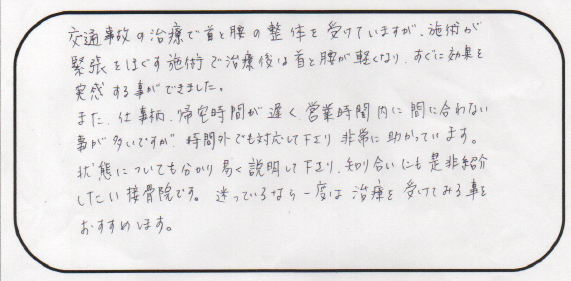 交通事故の治療で首と腰の整体を受けていますが、施術が
緊張をほぐす施術で治療後は首と腰が軽くなり、すぐに効果を
実感する事ができました。
また、仕事柄、帰宅時間が遅く、営業時間内に間に合わない
事が多いですが、時間外でも対応して下さり非常に助かっています。
状態についても分かり易く説明して下さり、知り合いにも是非紹介
したい接骨院です。迷っているなら一度は治療を受けてみる事を
おすすめします。